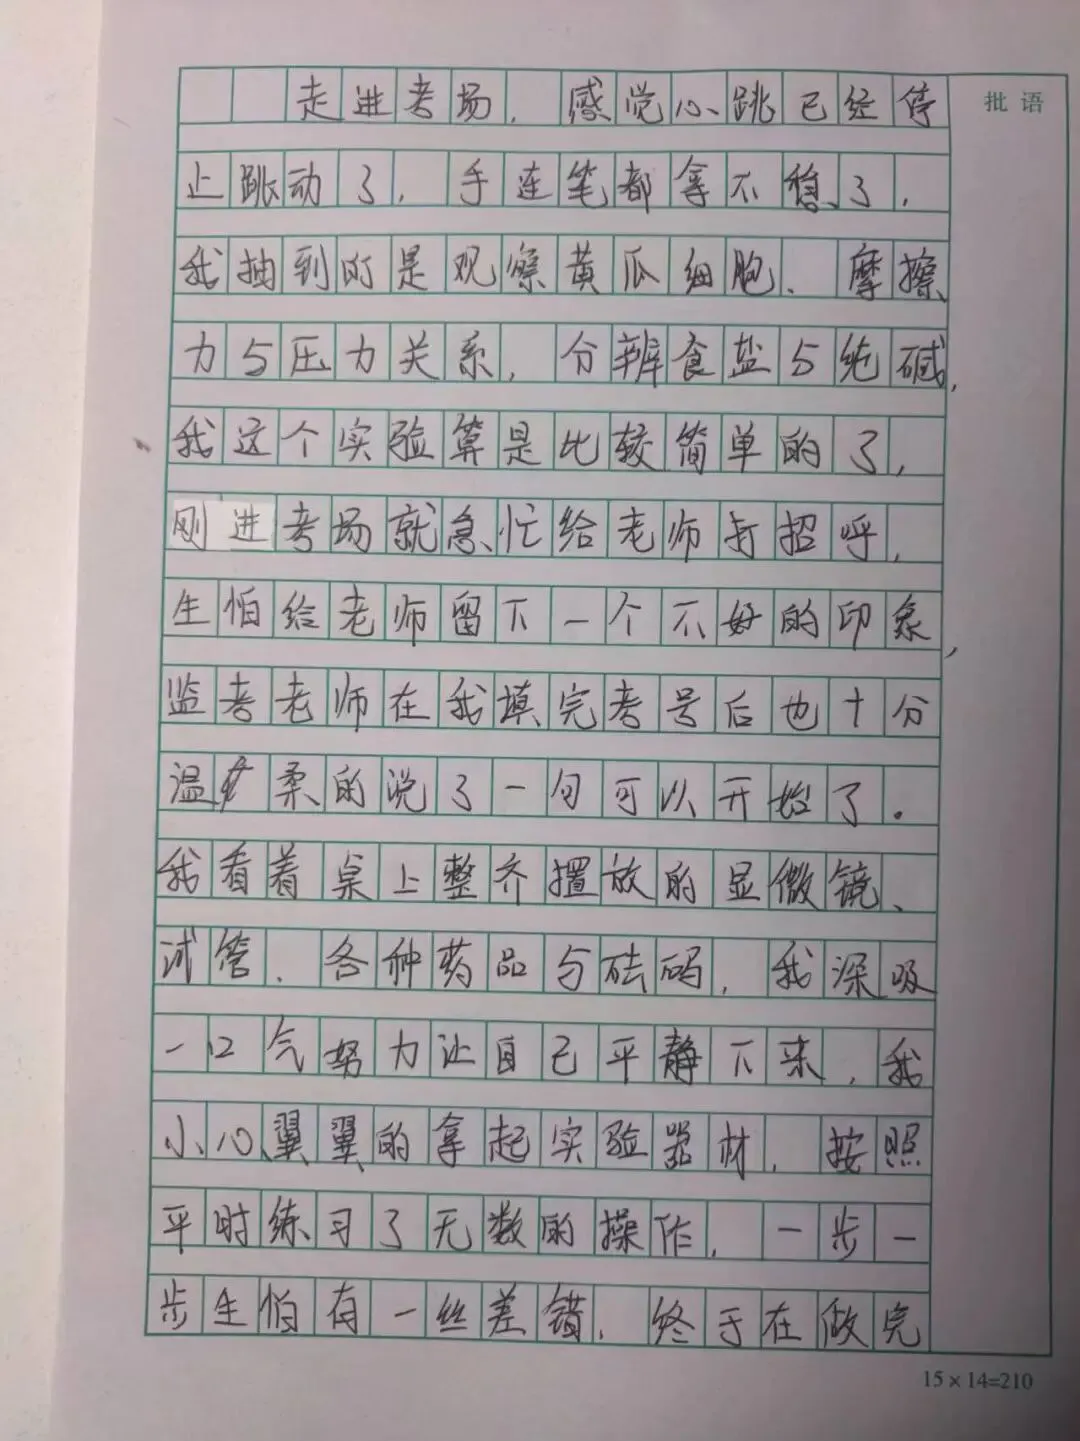 批语
走进考场，感觉心跳已经停
止跳动了，手连笔都拿不稳了，
我抽到的是观察黄瓜细胞、摩擦
力与压力关系，分辨食盐与纯碱，
我这个实验算是比较简单的了，
刚进考场就急忙给老师打招呼，
生怕给老师留下一个不好的印象，
监考老师在我填完考号后也十分
温柔的说了一句可以开始了。
我看着桌上整齐摆放的显微镜、
试管、各种药品与砝码，我深吸
一口气努力让自己平静下来，我
小心翼翼的拿起实验器材，按照
平时练习了无数的操作，一步一
步生怕有一丝差错，终于在做完
15×14=210